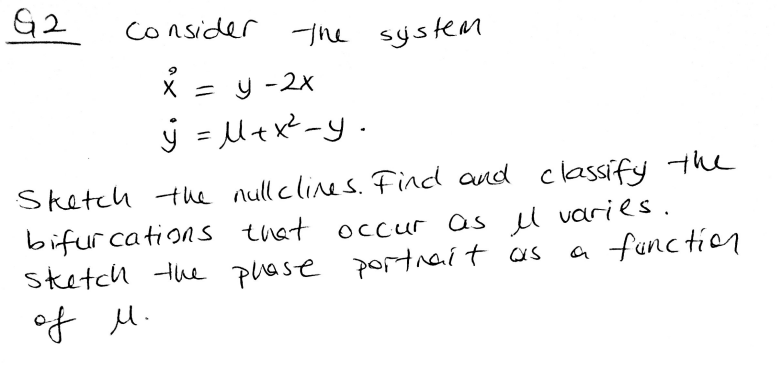 Q2 Consider the system
ẋ = y - 2x
ẏ = μ + x² - y.
Sketch the nullclines. Find and classify the
bifurcations that occur as μ varies.
Sketch the phase portrait as a function
of μ.